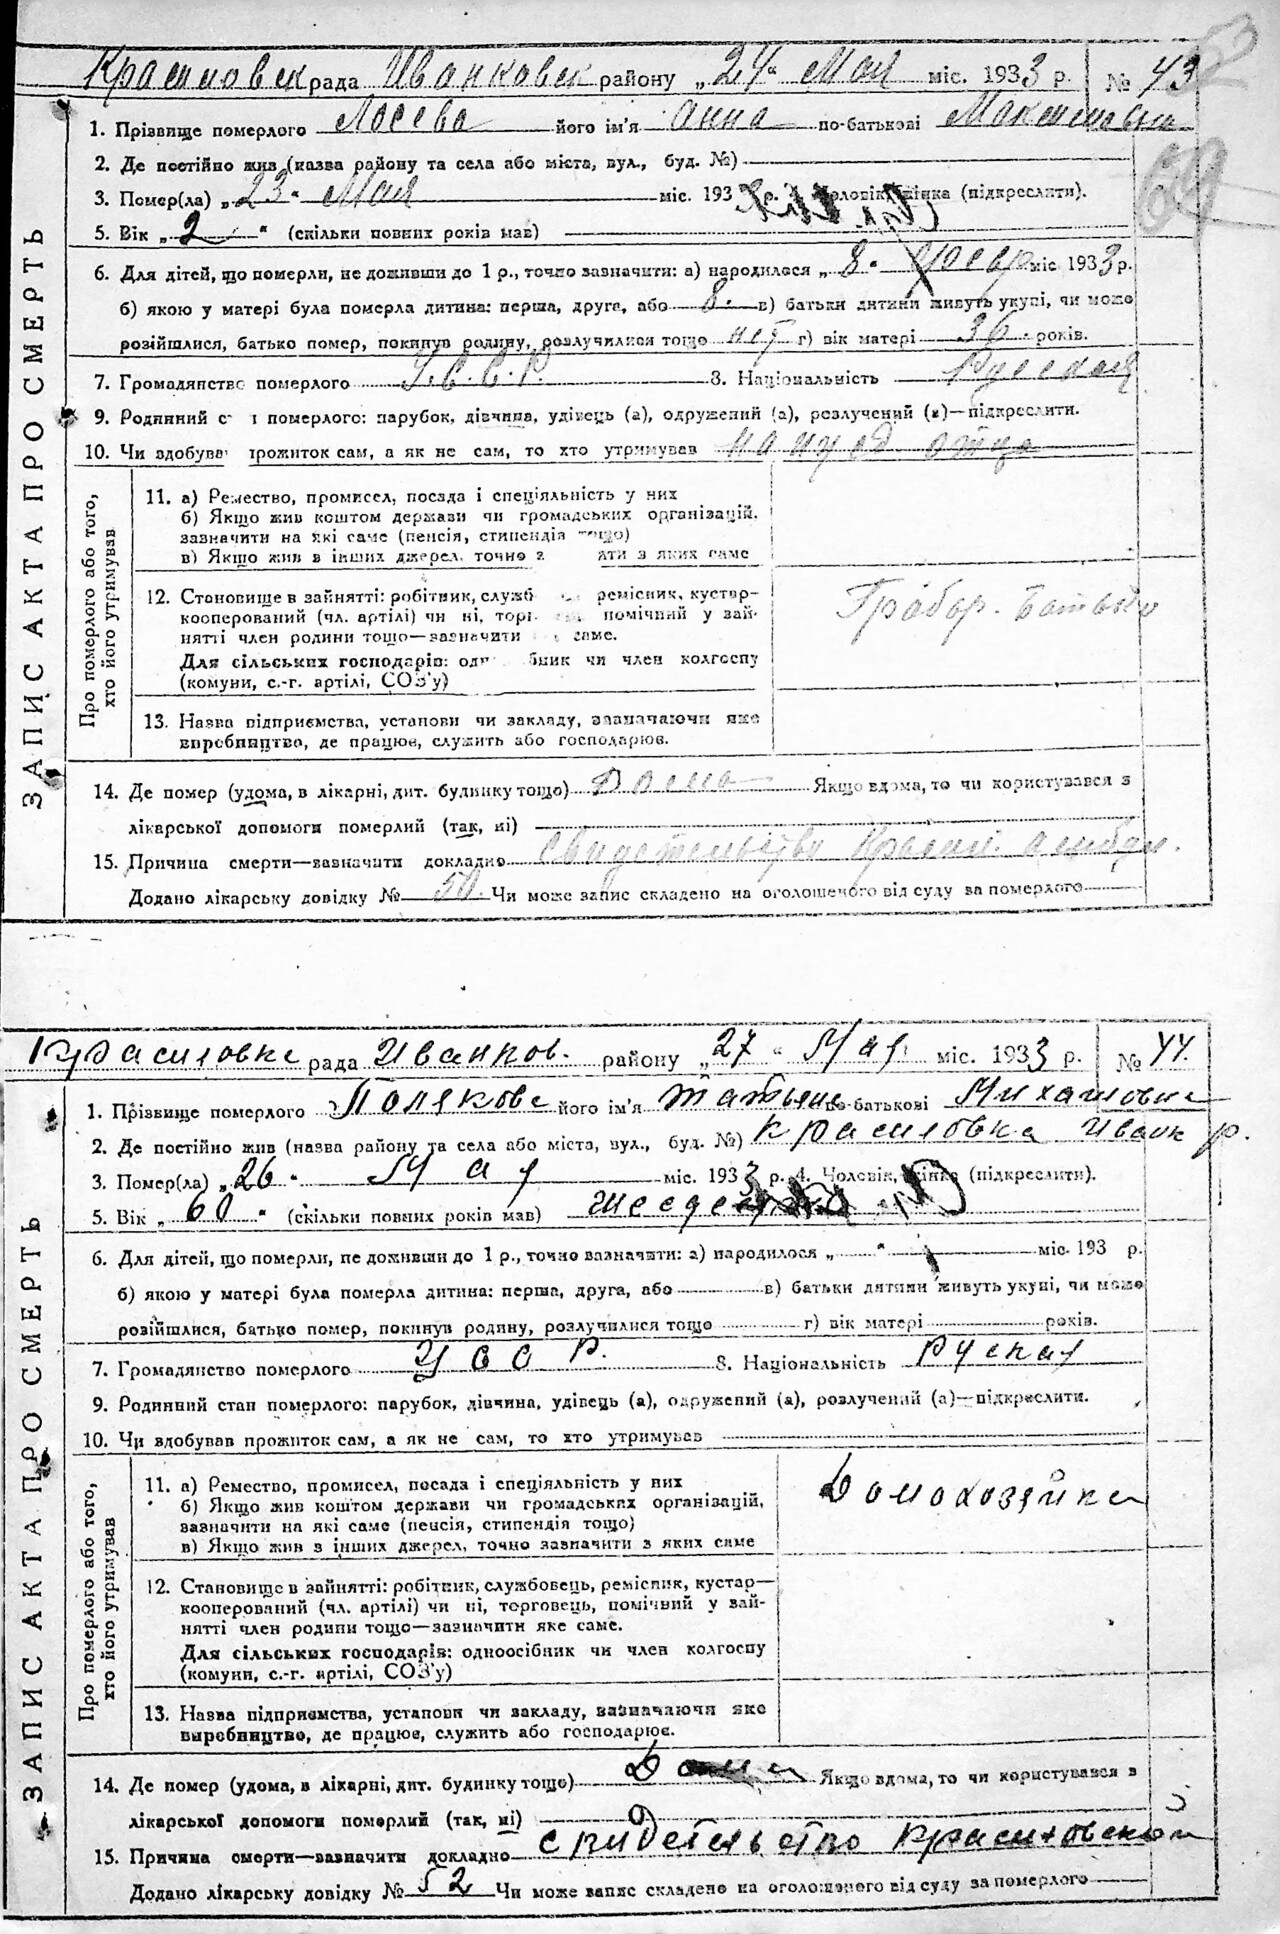 Красиловск рада Иванковск району „24“ Мая міс. 1933 р. № 43
1. Прізвище померлого Лосева його ім'я Анна по-батькові
2. Де постійно жив (назва району та села або міста, вул., буд. №)
3. Помер(ла) „23“ Мая міс. 193 р. жінка (підкреслити).
5. Вік „2“ (скільки повних років мав)
6. Для дітей, що померли, не доживши до 1 р., точно зазначити: а) народилося „8“ міс. 1933 р.
б) якою у матері була померла дитина: перша, друга, або 8. в) батьки дитини живуть укупі, чи може
розійшлися, батько помер, покинув родину, розлучилися тощо нет г) вік матері 36 років.
7. Громадянство померлого У.С.С.Р. 8. Національність Русская
9. Родинний померлого: парубок, дівчина, удівець (а), одружений (а), розлучений (а)—підкреслити.
10. Чи здобував прожиток сам, а як не сам, то хто утримував отца
ЗАПИС АКТА ПРО СМЕРТЬ
Про померлого або того,
хто його утримував
11. а) Ремество, промисел, посада і спеціяльність у них
б) Якщо жив коштом держави чи громадських організацій,
зазначити на які саме (пенсія, стипендія тощо)
в) Якщо жив з інших джерел, точно з яких саме
12. Становище в зайнятті: робітник, ремісник, кустар-
кооперований (чл. артілі) чи ні, помічний у зай-
нятті член родини тощо—зазначити саме.
Для сільських господарів: чи член колгоспу
(комуни, с.-г. артілі, СОЗ'у)
13. Назва підприємства, установи чи закладу, зазначаючи яке
виробництво, де працює, служить або господарює.
14. Де помер (удома, в лікарні, дит. будинку тощо) Дома Якщо вдома, то чи користувався з
лікарської допомоги померлий (так, ні)
15. Причина смерти—зазначити докладно Свидетельство
Додано лікарську довідку № 50. Чи може запис складено на оголошеного від суду за померлого
Красиловка рада Иванков. району „27“ Мая міс. 1933 р. № 44.
1. Прізвище померлого Полякова його ім'я Татьяна по-батькові Михайловна
2. Де постійно жив (назва району та села або міста, вул., буд. №) Красиловка Иванк р.
3. Помер(ла) „26“ Мая міс. 1933 р. 4. Чоловік, жінка (підкреслити).
5. Вік „60“ (скільки повних років мав)
6. Для дітей, що померли, не доживши до 1 р., точно зазначити: а) народилося „ “ міс. 193 р.
б) якою у матері була померла дитина: перша, друга, або в) батьки дитини живуть укупі, чи може
розійшлися, батько помер, покинув родину, розлучилися тощо г) вік матері років.
7. Громадянство померлого УССР. 8. Національність Руская
9. Родинний стан померлого: парубок, дівчина, удівець (а), одружений (а), розлучений (а)—підкреслити.
10. Чи здобував прожиток сам, а як не сам, то хто утримував
ЗАПИС АКТА ПРО СМЕРТЬ
Про померлого або того,
хто його утримував
11. а) Ремество, промисел, посада і спеціяльність у них
б) Якщо жив коштом держави чи громадських організацій,
зазначити на які саме (пенсія, стипендія тощо)
в) Якщо жив з інших джерел, точно зазначити з яких саме
Домохозяйка
12. Становище в зайнятті: робітник, службовець, ремісник, кустар—
кооперований (чл. артілі) чи ні, торговець, помічний у зай-
нятті член родини тощо—зазначити яке саме.
Для сільських господарів: одноосібник чи член колгоспу
(комуни, с.-г. артілі, СОЗ'у)
13. Назва підприємства, установи чи закладу, зазначаючи яке
виробництво, де працює, служить або господарює.
14. Де помер (удома, в лікарні, дит. будинку тощо) Якщо вдома, то чи користувався з
лікарської допомоги померлий (так, ні)
15. Причина смерти—зазначити докладно свидетельство Красиловской
Додано лікарську довідку № 52 Чи може запис складено на оголошеного від суду за померлого